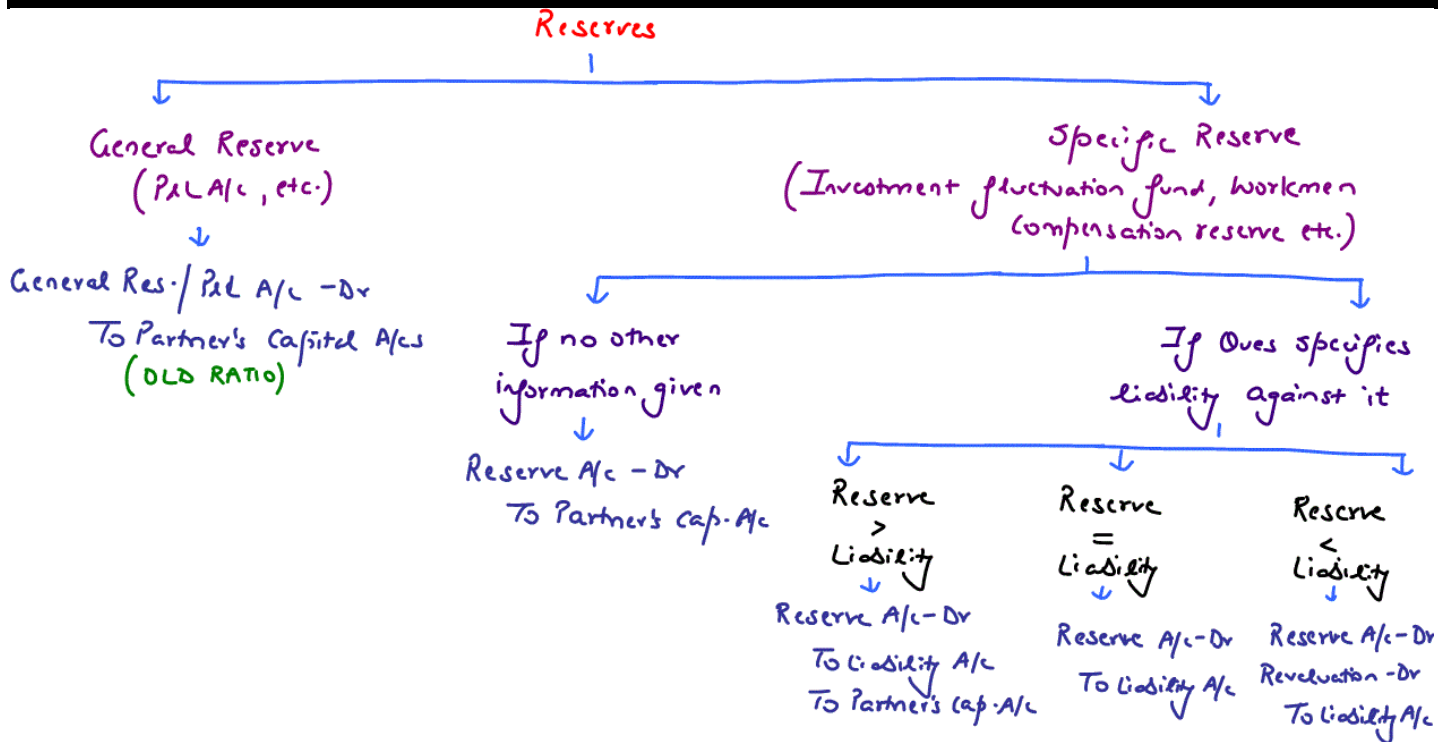 Reserves
General Reserve
(P&L A/c, etc.)
General Res./P&L A/c -Dr
To Partner's Capital A/cs
(OLD RATIO)
Specific Reserve
(Investment fluctuation fund, Workmen
Compensation reserve etc.)
If no other
information given
Reserve A/c - Dr
To Partner's Cap. A/c
If Ques specifies
liability against it
Reserve
>
Liability
Reserve A/c-Dr
To Liability A/c
To Partner's Cap. A/c
Reserve
=
Liability
Reserve A/c-Dr
To Liability A/c
Reserve
<
Liability
Reserve A/c-Dr
Revaluation -Dr
To Liability A/c